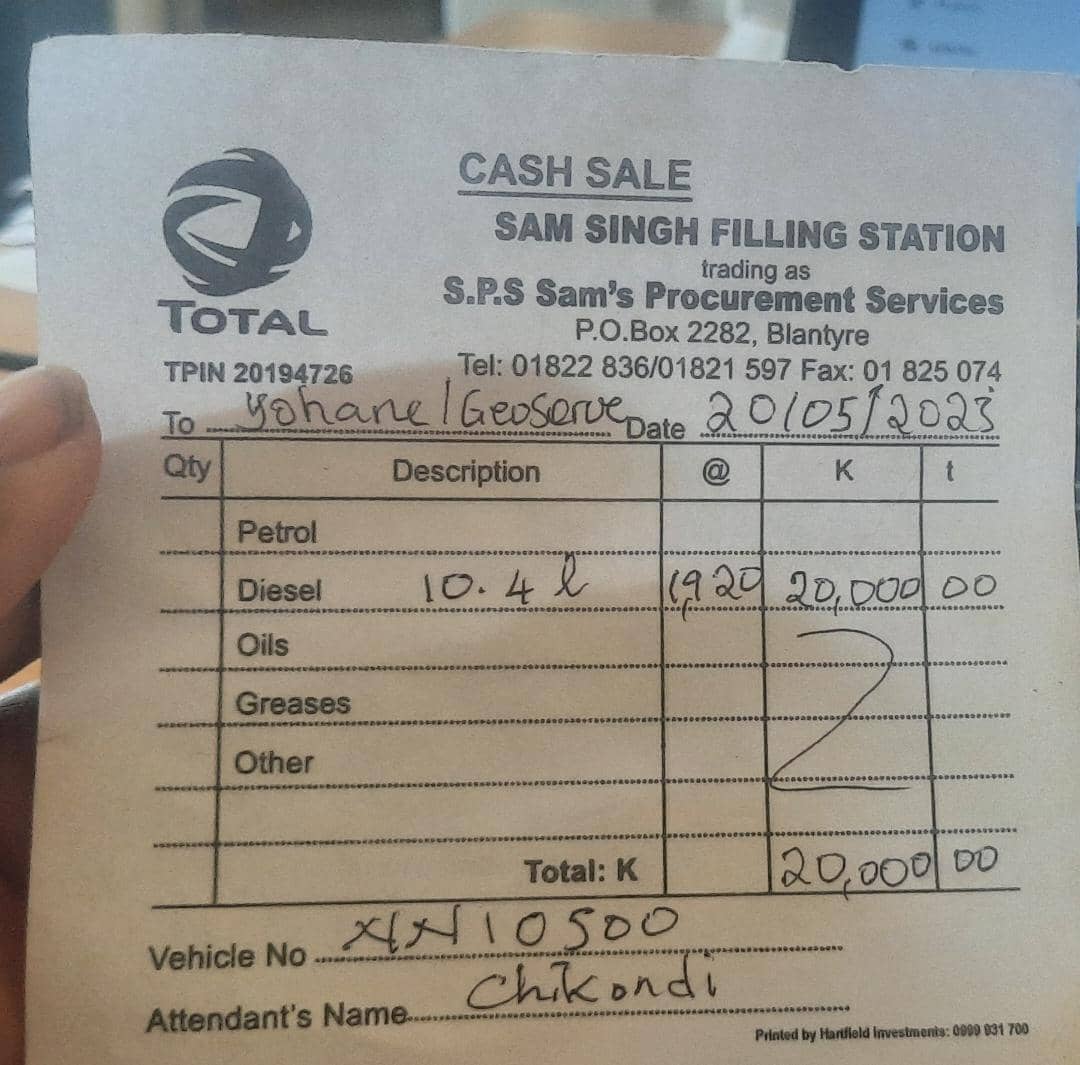 CASH SALE
SAM SINGH FILLING STATION
trading as
S.P.S Sam's Procurement Services
P.O.Box 2282, Blantyre
TOTAL
TPIN 20194726
Tel: 01822 836/01821 597 Fax: 01 825 074
To Yohane / Geoserve Date 20/05/2023
Qty Description @ K t
Petrol
Diesel 10.4 l 1,920 20,000 00
Oils
Greases
Other
Total: K 20,000 00
Vehicle No 10500
Attendant's Name Chikondi
Printed by Hartfield Investments: 0999 931 700